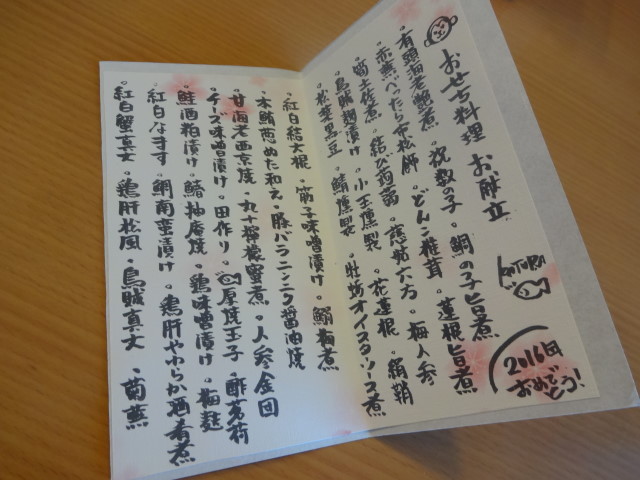 おせち料理 お献立
KOTUBA
2016年
おめでとう!
・有頭海老艶煮 ・祝数の子 ・鯛の子旨煮
・赤蕪べったら市松飾 ・どんこ椎茸 ・蓮根旨煮
・筍土佐煮 ・結び蒟蒻 ・慈姑六方 ・梅人参
・烏賊麹漬け ・小玉燻製 ・花蓮根 ・絹鞘
・松葉黒豆 ・鯖燻製 ・牡蛎オイスターソース煮
・紅白結大根 ・筋子味噌漬け ・鰯梅煮
・本鮪葱ぬた和え ・豚バラニンニク醤油焼
・甘海老西京焼 ・丸十檸檬蜜煮 ・人参金団
・チーズ味噌漬け ・田作り ・厚焼玉子 ・酢茗荷
・鮭酒粕漬け ・鰆柚庵焼 ・鶏味噌漬け ・梅麩
・紅白なます ・鯛南蛮漬け ・鶏肝やわらか酒肴煮
・紅白蟹真丈 ・鶏肝松風 ・烏賊真丈 ・菊蕪